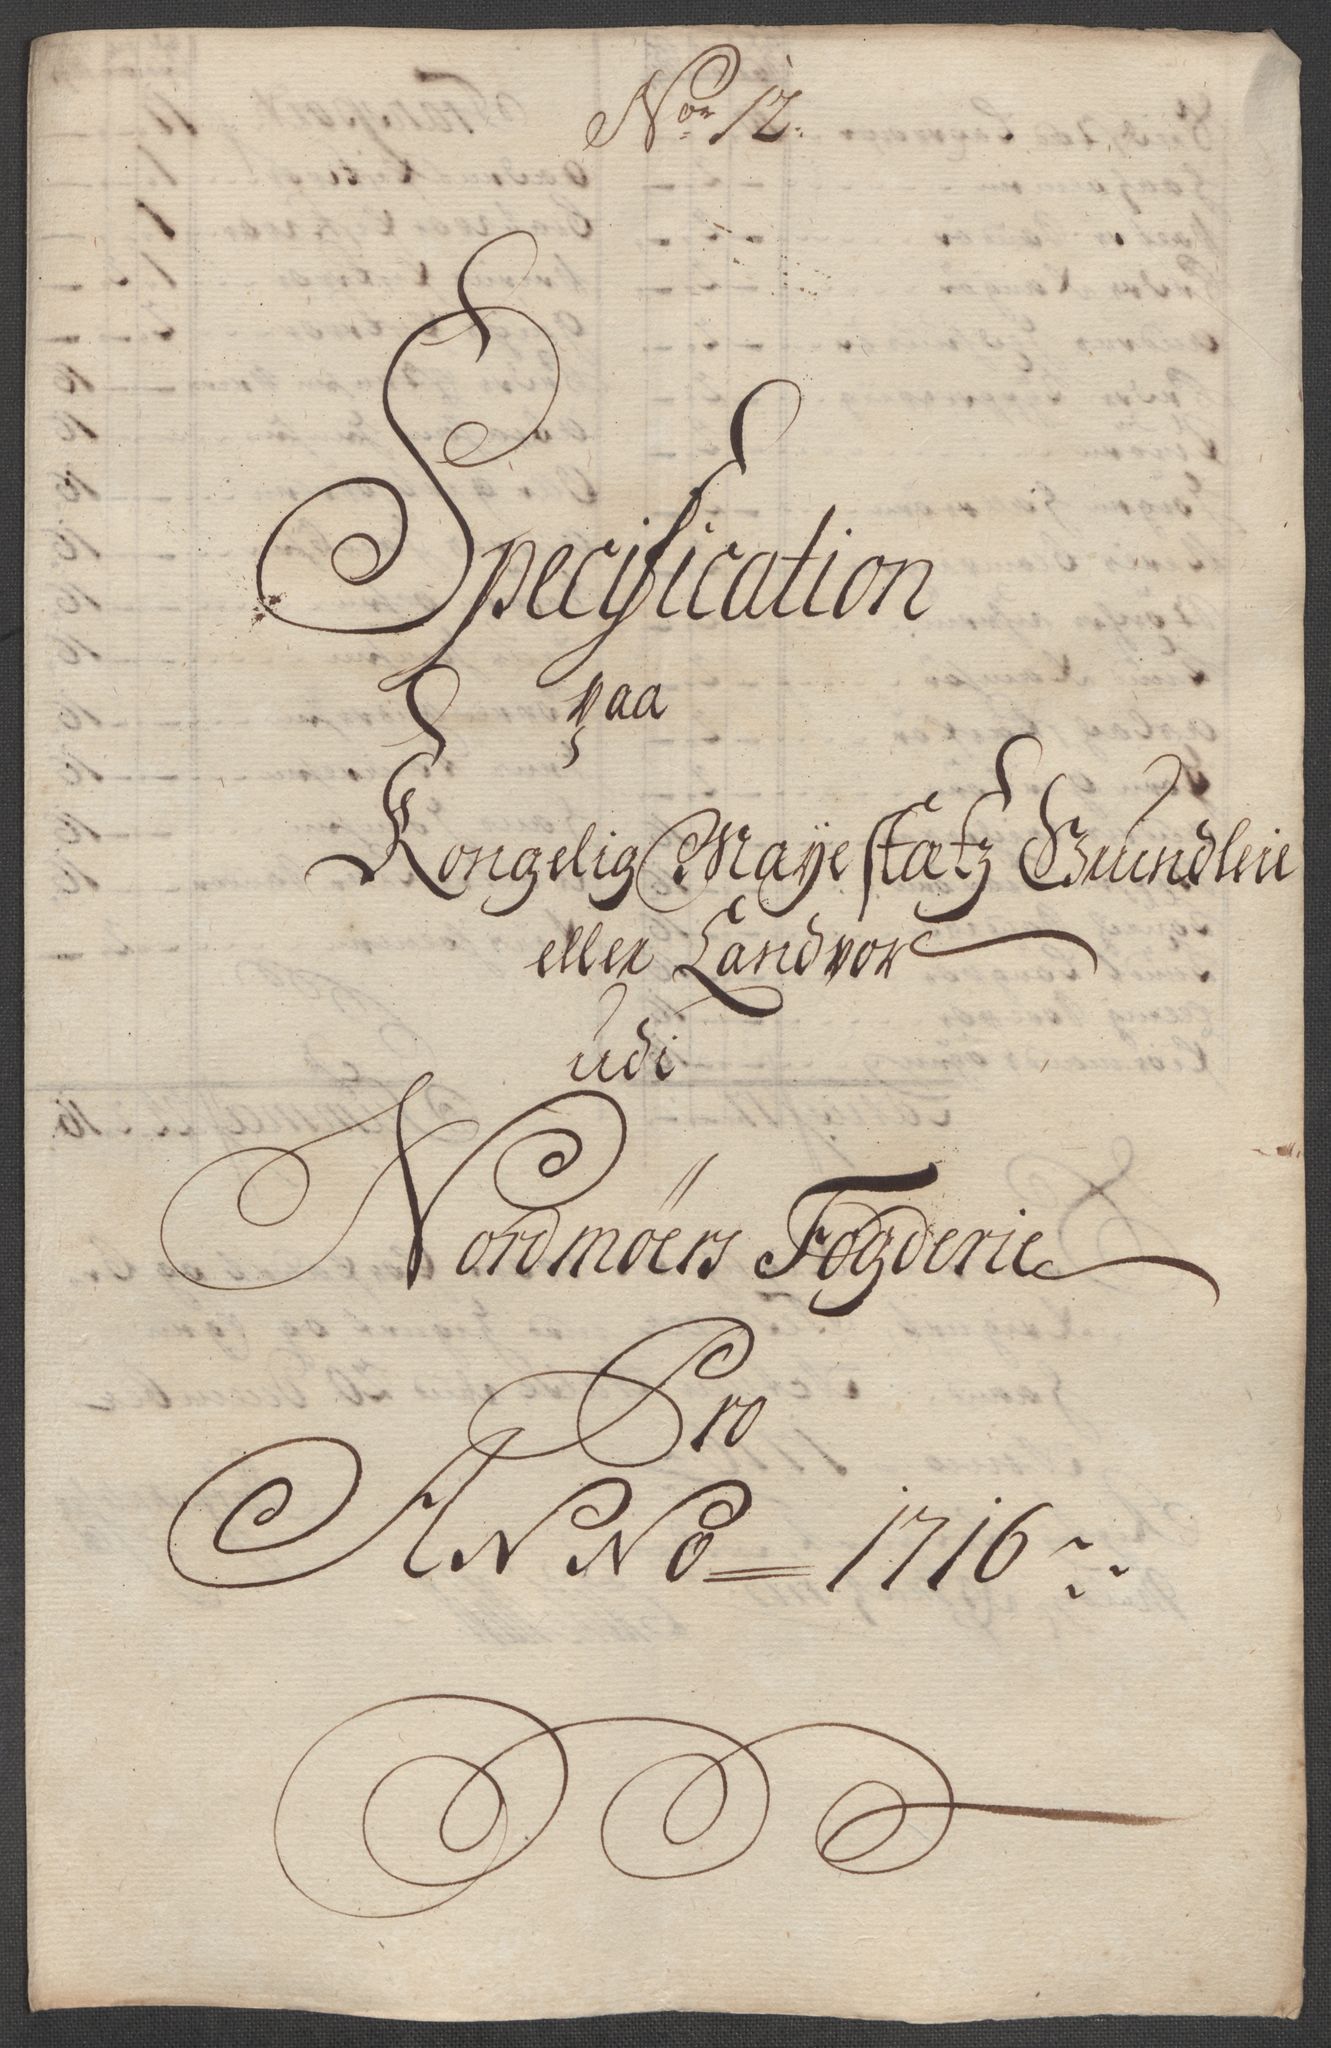 No. 12.
Specification
paa
Kongelig Mayestætz Grundleie
eller Landvor
udi
Nordmöers Fogderie
Pro
ANNO = 1716